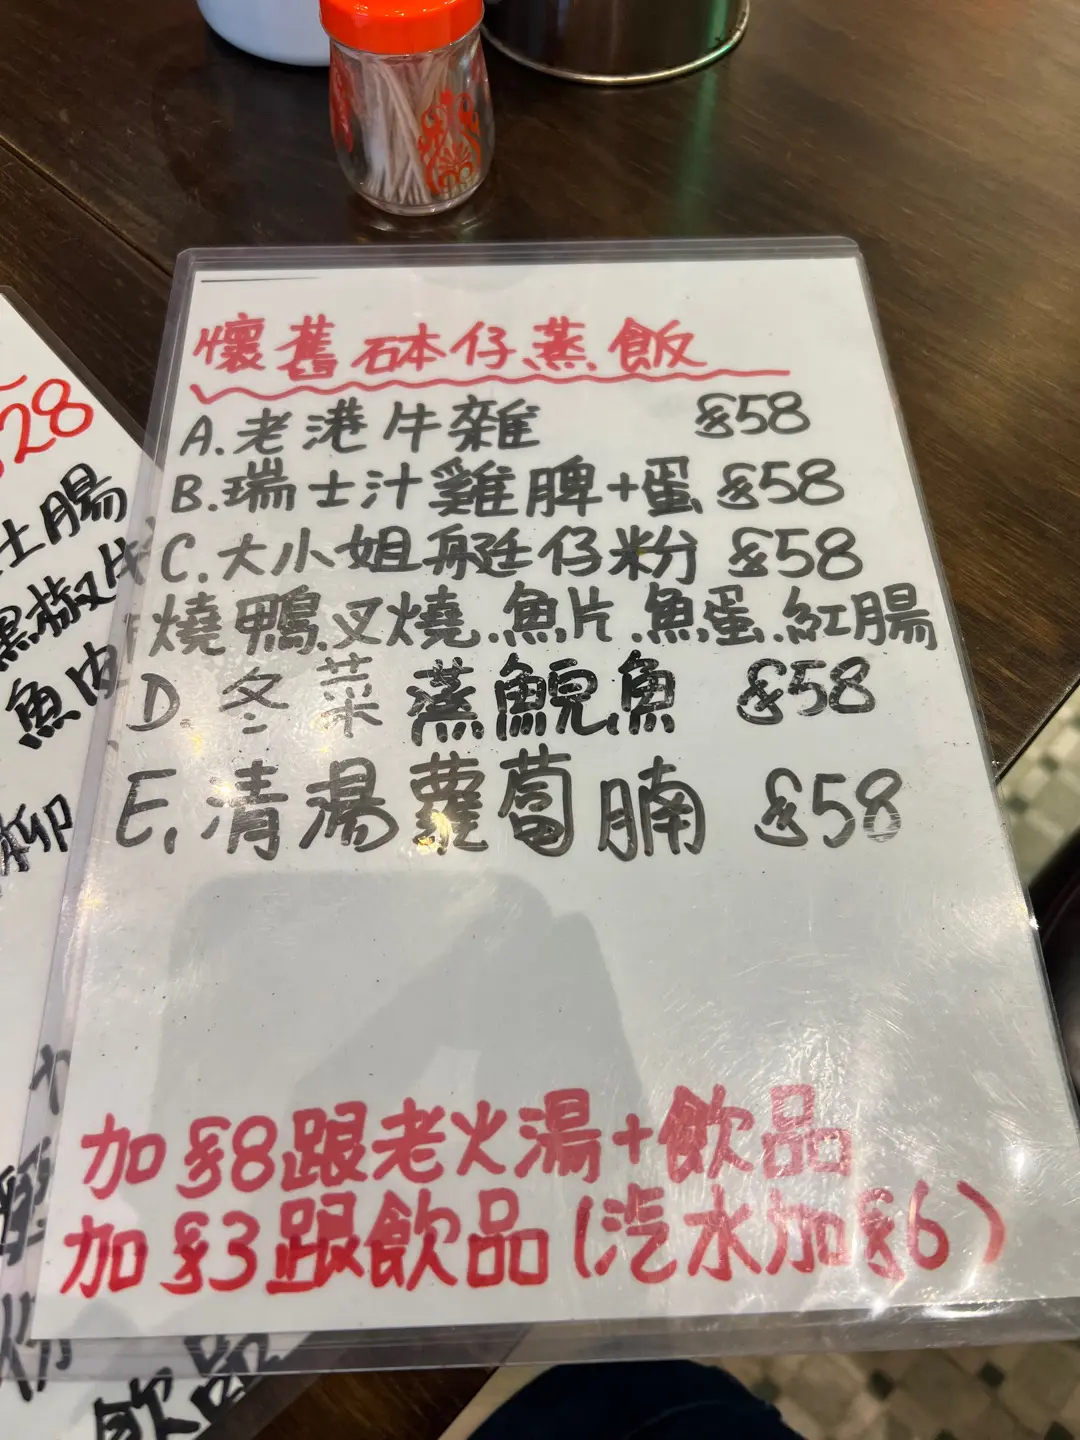 懷舊砵仔蒸飯
A.老港牛雜 $58
B.瑞士汁雞脾+蛋 $58
C.大小姐艇仔粉 $58
燒鴨.叉燒.魚片.魚蛋.紅腸
D 冬菜蒸鯇魚 $58
E.清湯蘿蔔腩 $58
加$8跟老火湯+飲品
加$3跟飲品(汽水加$6)
28
士腸
黑椒牛
魚肉
柳
飲品